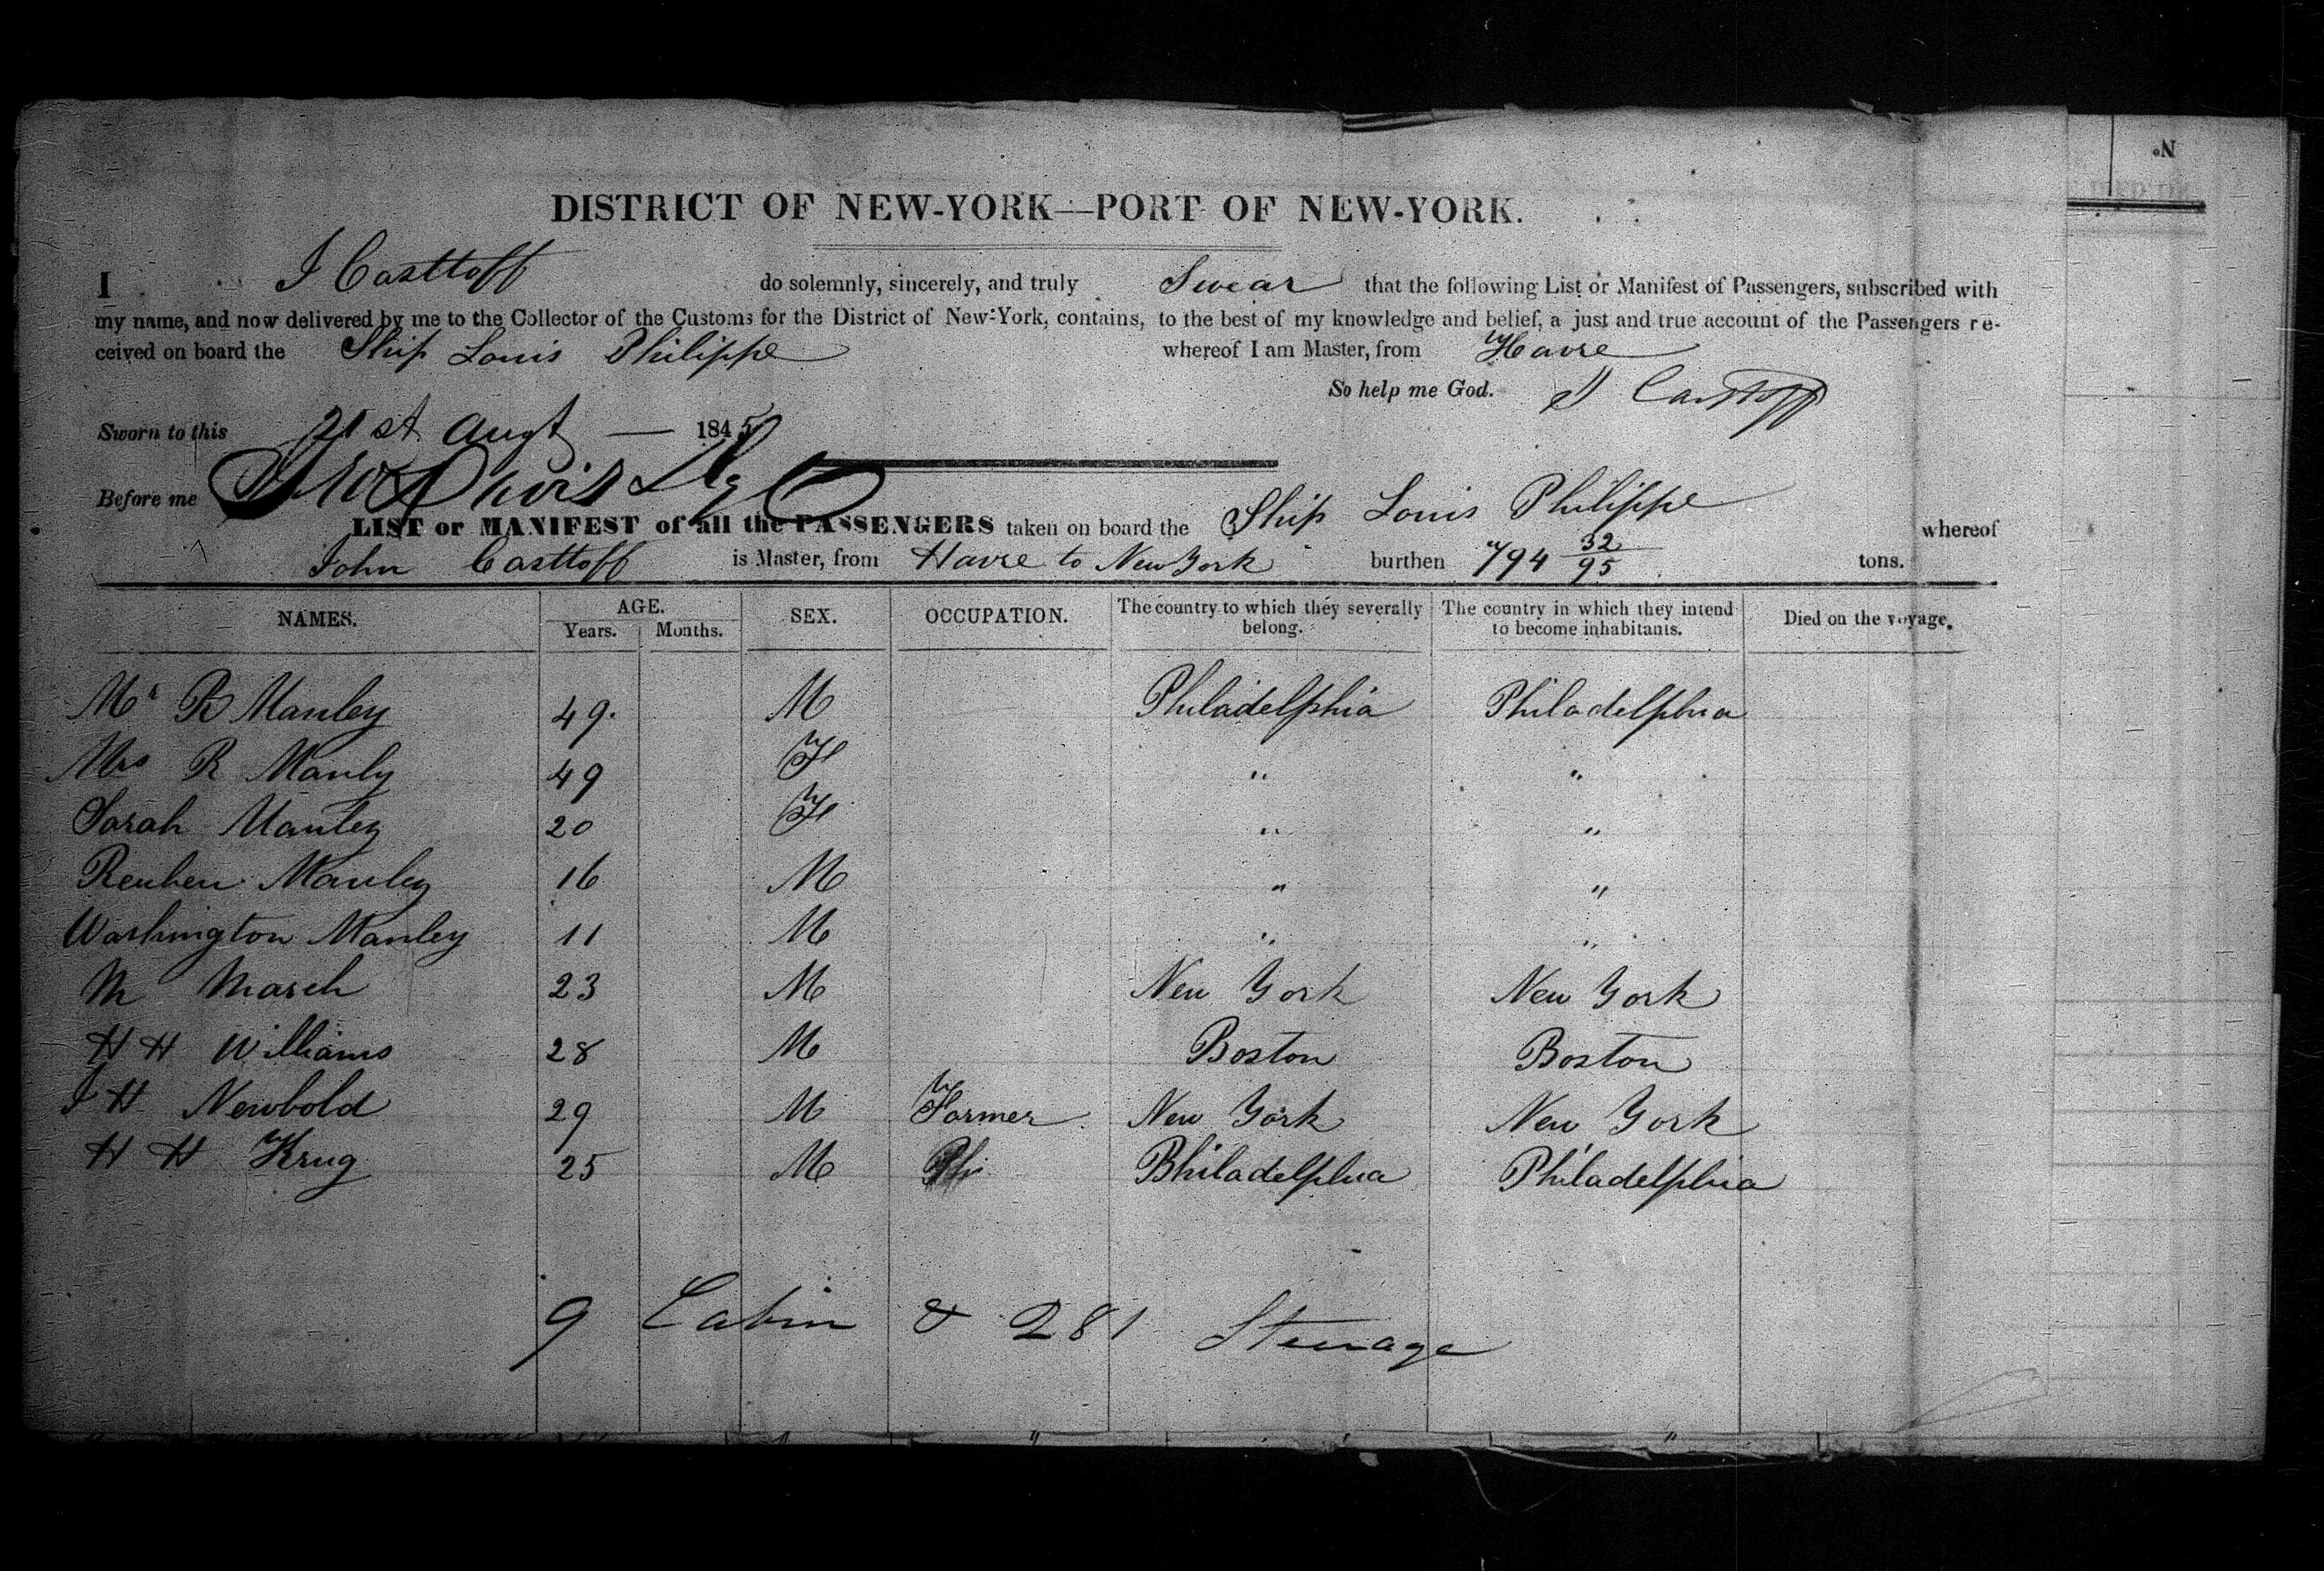 N
DISTRICT OF NEW-YORK—PORT OF NEW-YORK.
I J Casttoff do solemnly, sincerely, and truly Swear that the following List or Manifest of Passengers, subscribed with
my name, and now delivered by me to the Collector of the Customs for the District of New-York, contains, to the best of my knowledge and belief, a just and true account of the Passengers re-
ceived on board the Ship Louis Philippe whereof I am Master, from Havre
So help me God. J Casttoff
Sworn to this 21st Augt — 1845
Before me Davis
LIST or MANIFEST of all the PASSENGERS taken on board the Ship Louis Philippe whereof
John Casttoff is Master, from Havre to New York burthen 794 32/95 tons.
NAMES. AGE. SEX. OCCUPATION. The country to which they severally belong. The country in which they intend to become inhabitants. Died on the voyage.
Years. Months.
Mr R Manley 49 M Philadelphia Philadelphia
Mrs R Manly 49 F " "
Sarah Manley 20 F " "
Reuben Manley 16 M " "
Washington Manley 11 M " "
M March 23 M New York New York
H H Williams 28 M Boston Boston
J H Newbold 29 M Farmer New York New York
H H Krug 25 M Philadelphia Philadelphia
9 Cabin & 281 Steerage